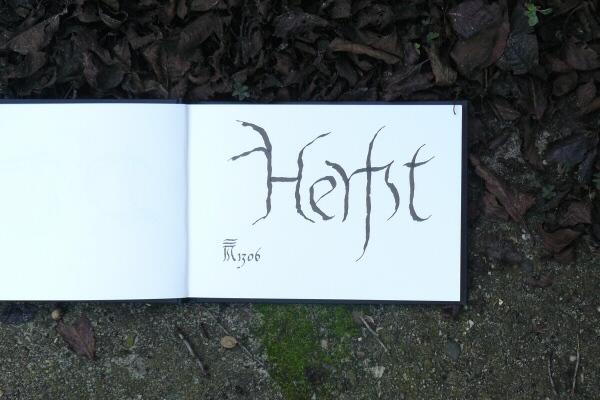 Herfst
1306